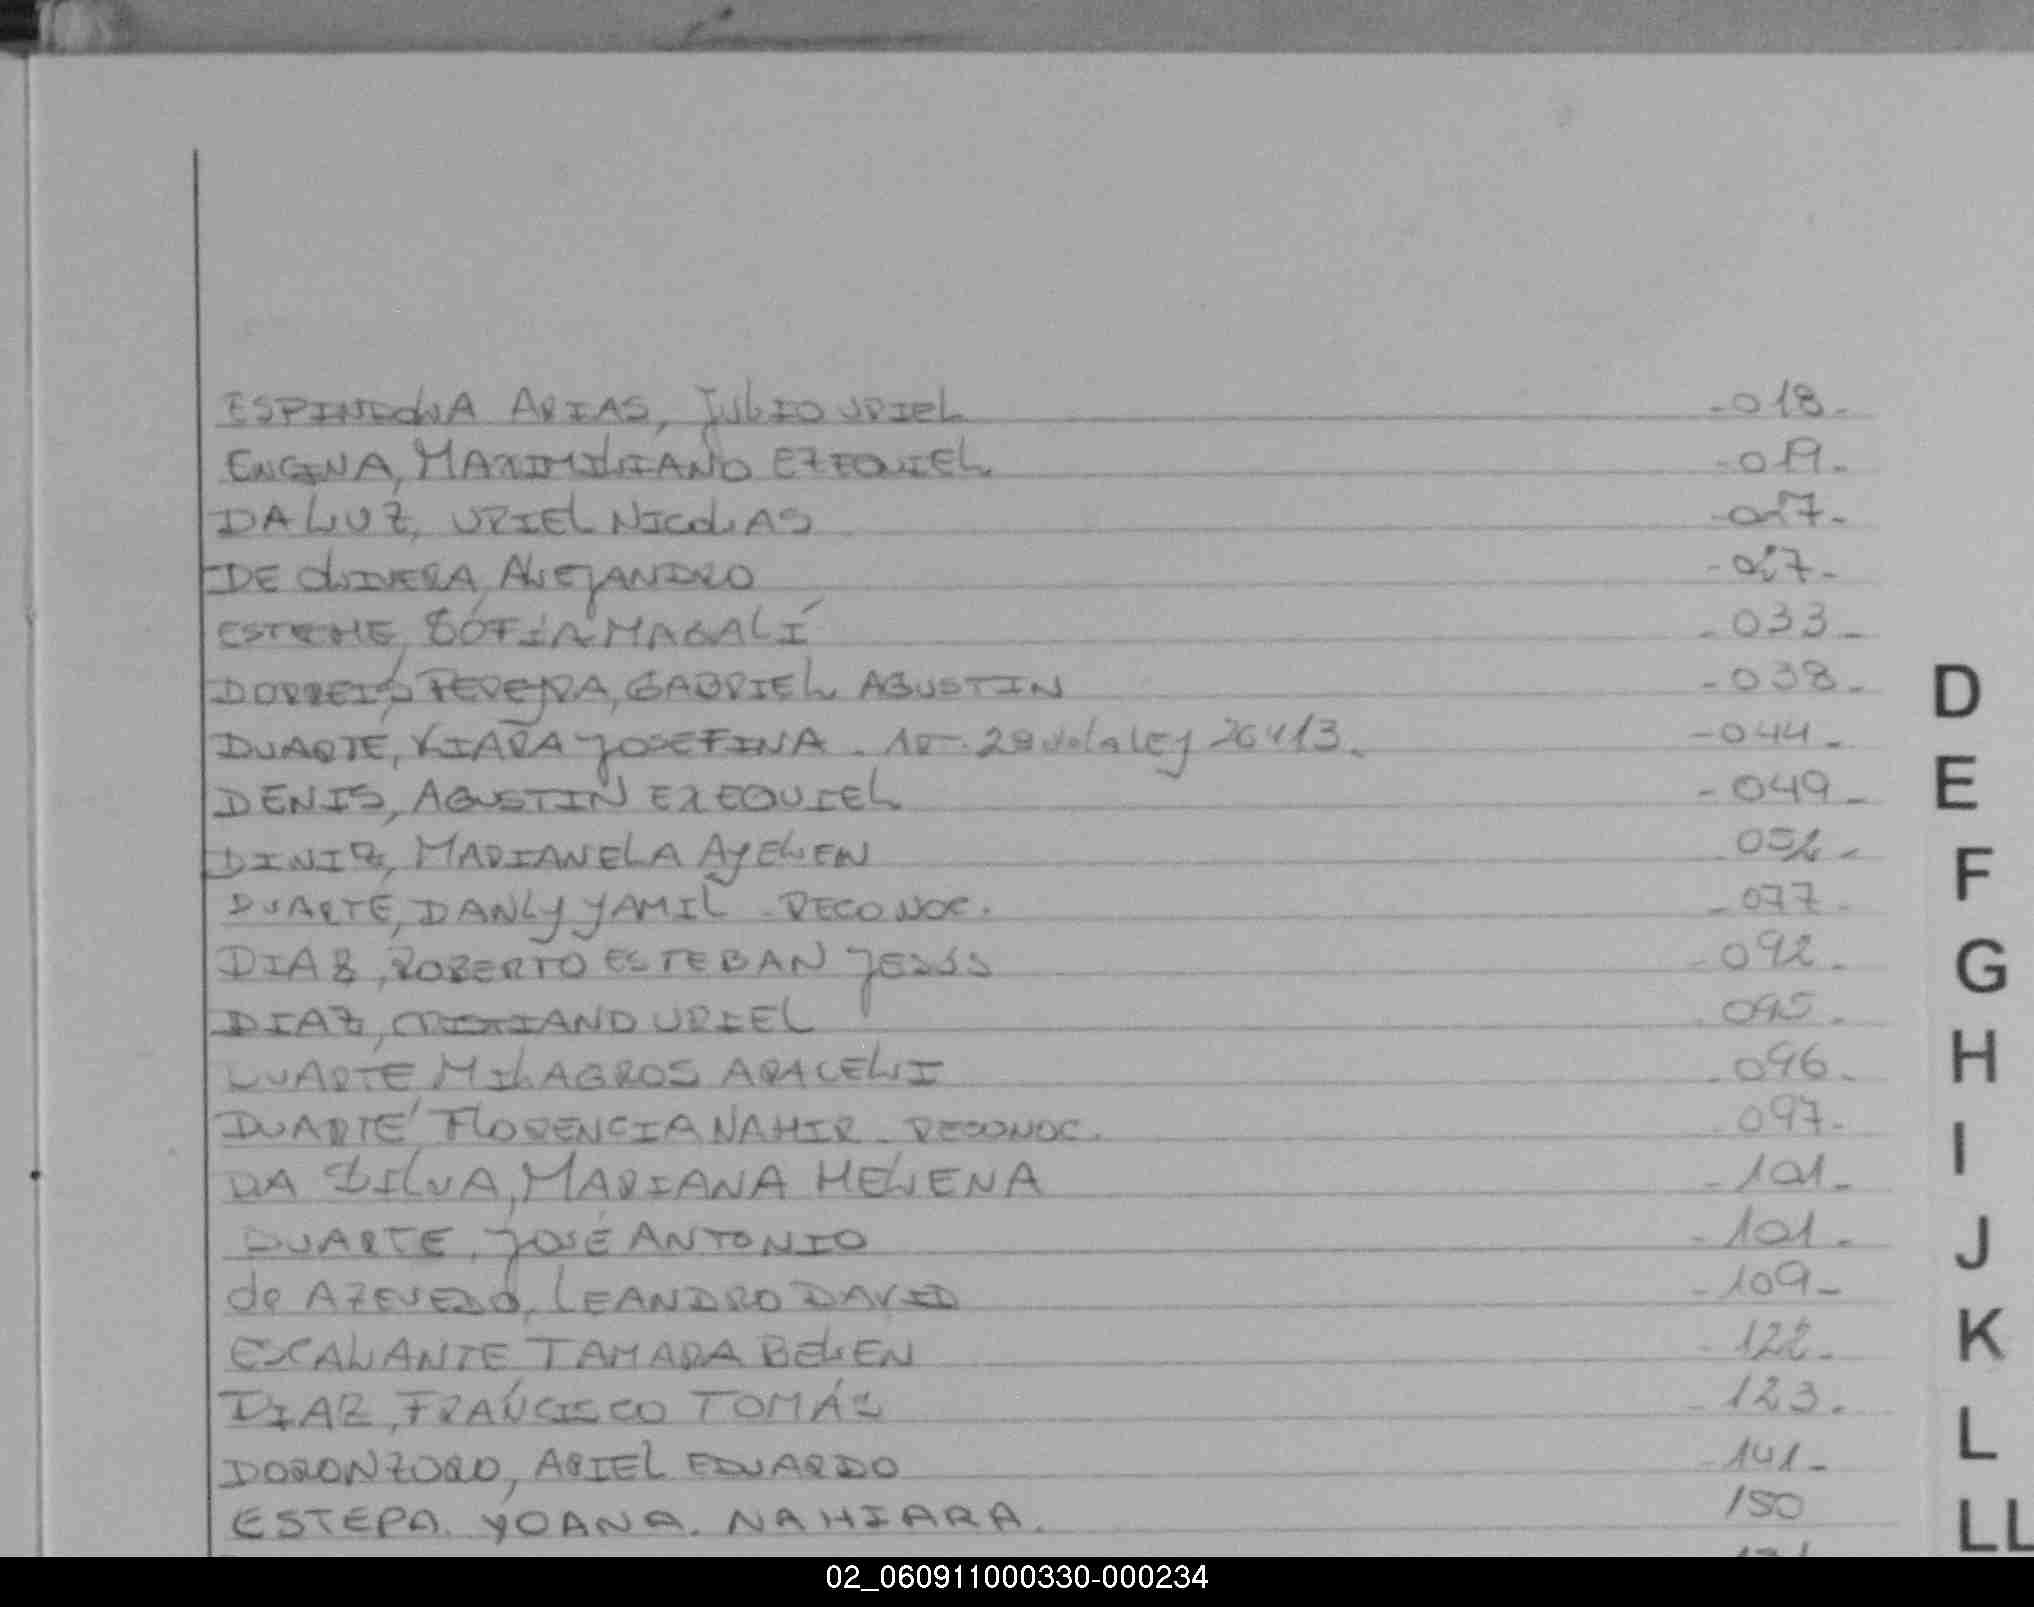 ESPINDOLA ARIAS, Julio URIEL -018-
ENCINA, MAXIMILIANO EZEQUIEL -019-
DA LUZ, URIEL NICOLAS -027-
DE OLIVERA, ALEJANDRO -027-
ESTECHE, SOFIA MAGALÍ -033-
DORNELIS PEREYRA, GABRIEL AGUSTIN -038-
DUARTE, KIARA JOSEFINA. 29 de la ley 26413. -044-
DENIS, AGUSTIN EZEQUIEL -049-
DINIZ, MARIANELA AYELEN 052-
DUARTE, DANLY YAMIL - RECONOC. -077-
DIAZ, ROBERTO ESTEBAN JESÚS -092-
DIAZ, CRISTIANO URIEL 095-
DUARTE MILAGROS ARACELI -096-
DUARTE FLORENCIA NAHIR - RECONOC. 097-
DA SILVA, MARIANA HELENA -101-
DUARTE, JOSÉ ANTONIO -101-
de AZEVEDO, LEANDRO DAVID -109-
ESCALANTE TAMARA BELEN -122-
DIAZ, FRANCISCO TOMÁS -123.
DORONZORO, ARIEL EDUARDO -141-
ESTEPA. YOANA. NAHIARA. 150
D
E
F
G
H
I
J
K
L
LL
02_060911000330-000234